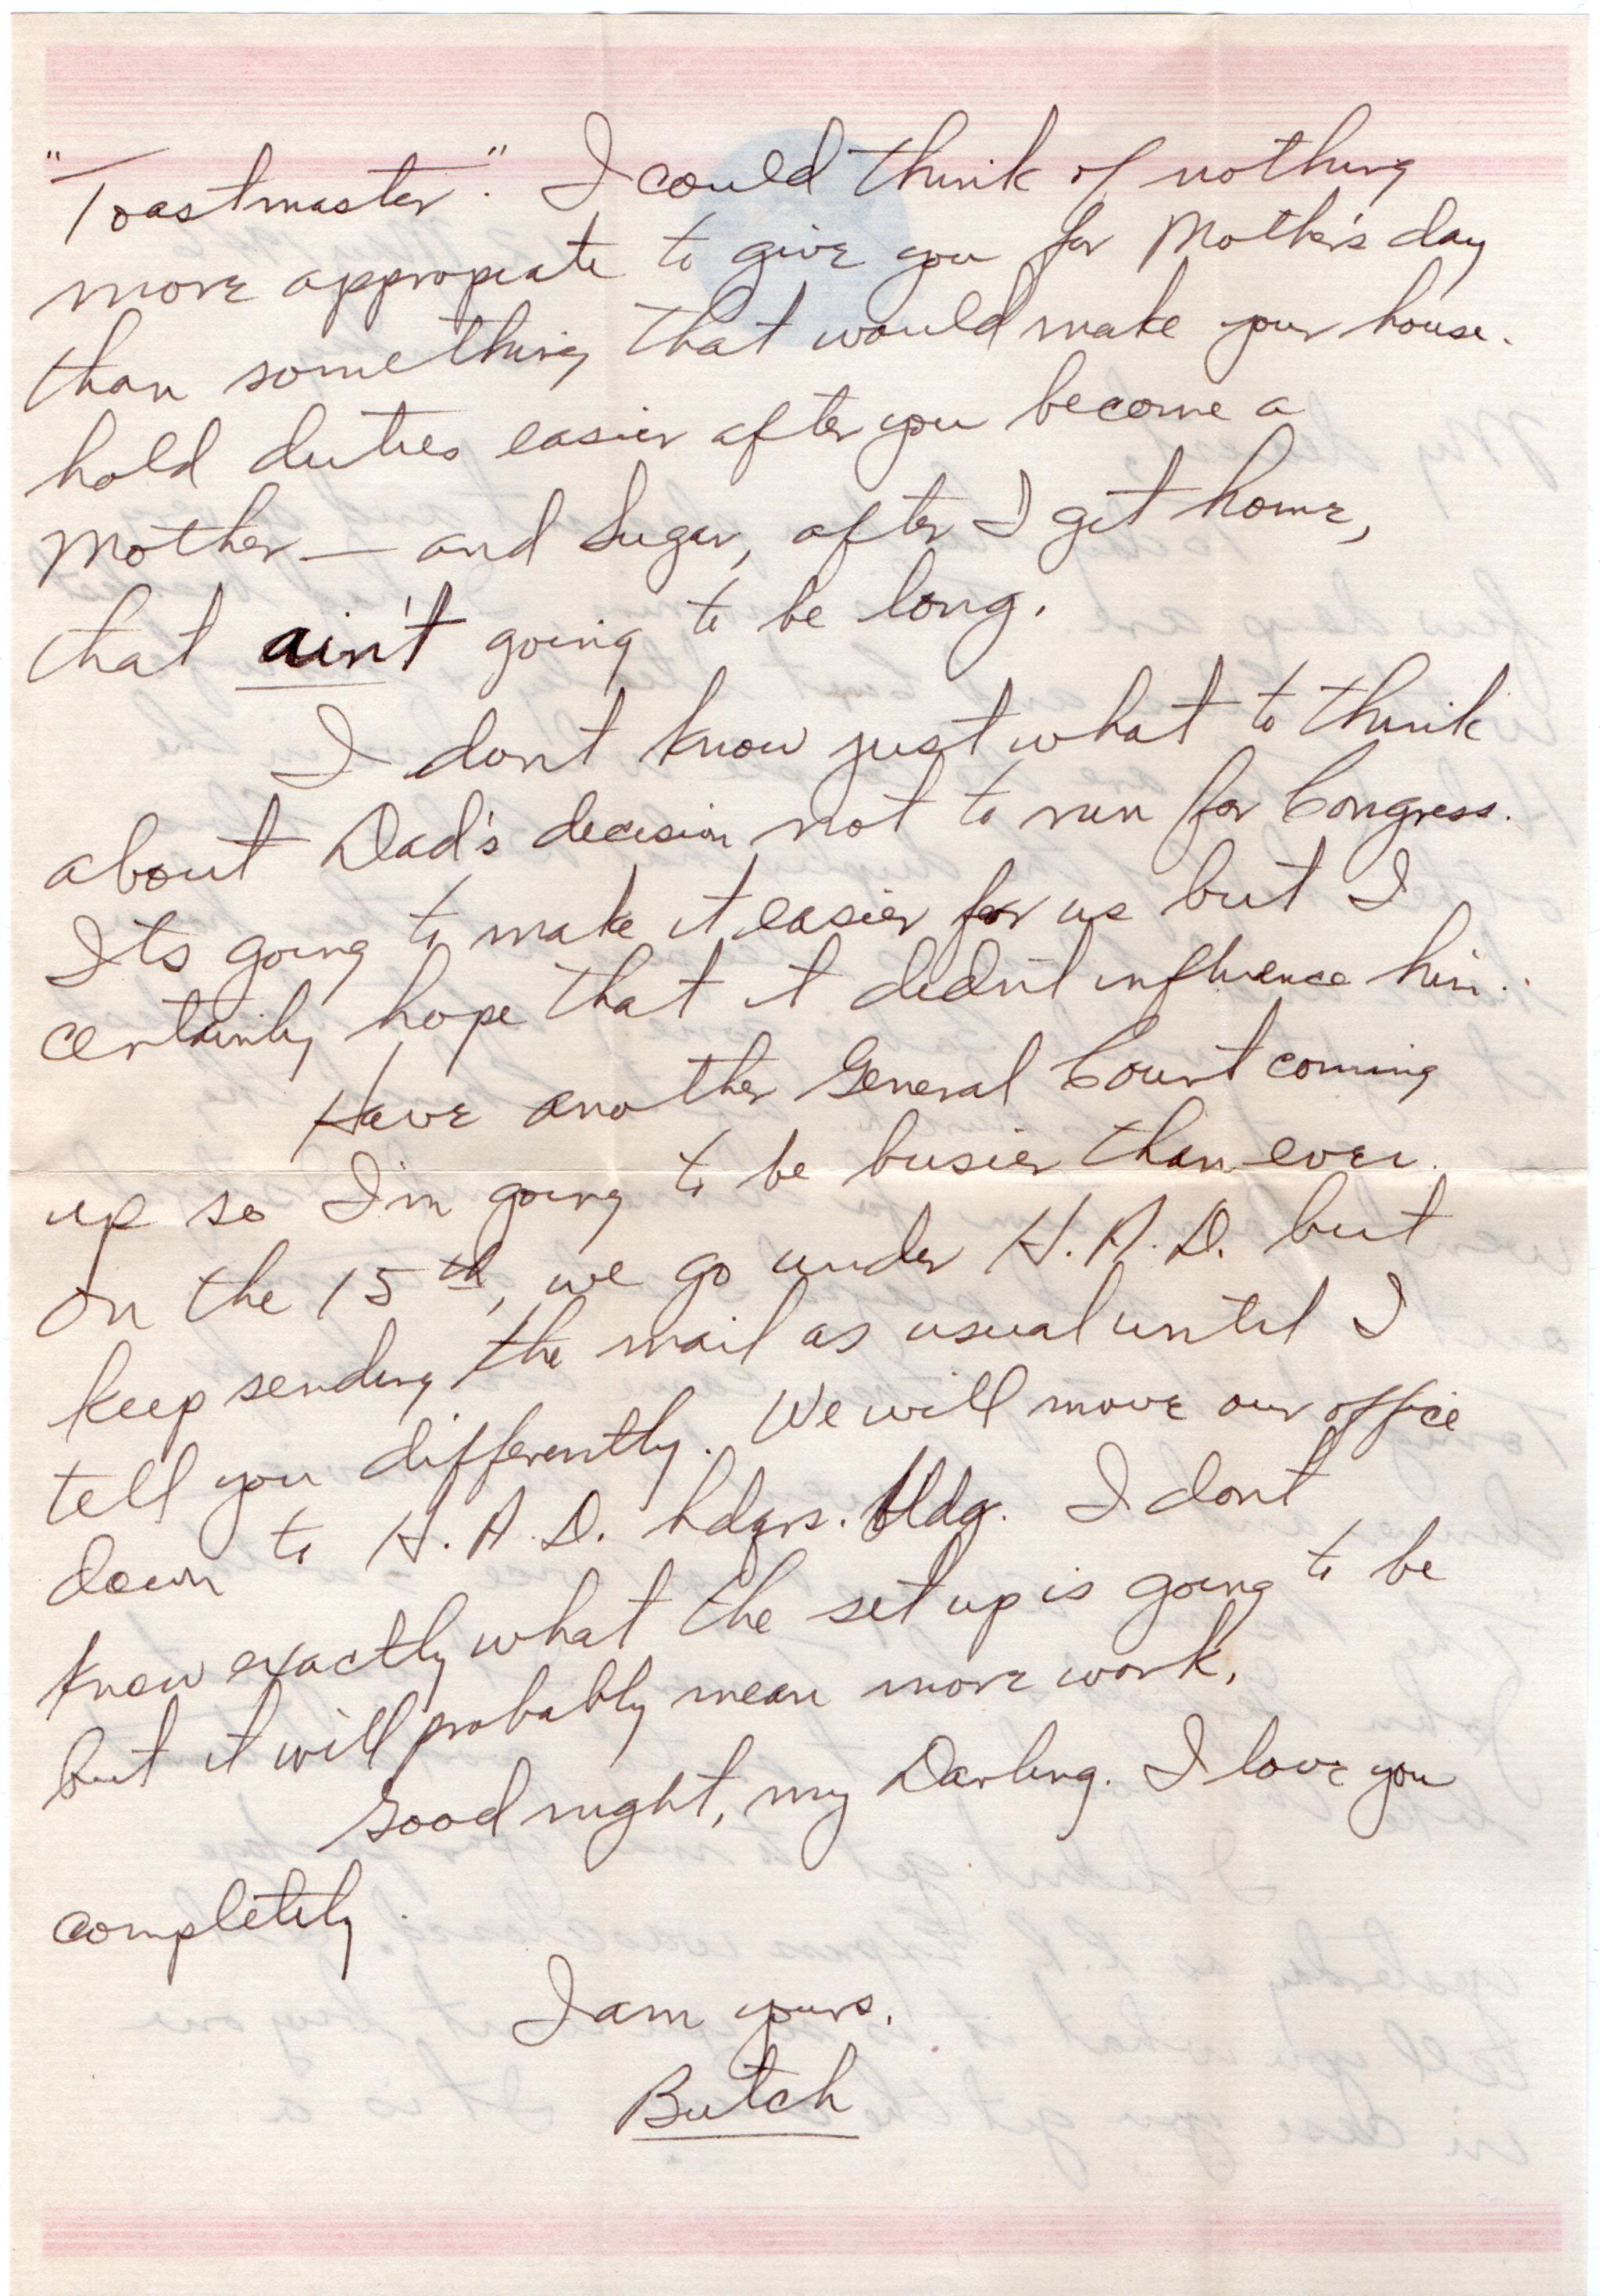 "Toastmaster". I could think of nothing
more appropeate to give you for Mother's day
than something that would make your house-
hold duties easier after you become a
Mother — and Sugar, after I get home,
that ain't going to be long.
I dont know just what to think
about Dad's decision not to run for Congress.
Its going to make it easier for us but I
certainly hope that it didn't influence him.
Have another General Court coming
up so I'm going to be busier than ever.
On the 15th, we go under H.A.D. but
keep sending the mail as usual until I
tell you differently. We will move our office
down to H.A.D. hdqrs. bldg. I dont
know exactly what the set up is going to be
but it will probably mean more work.
Good night, my Darling. I love you
completely.
I am yours.
Butch